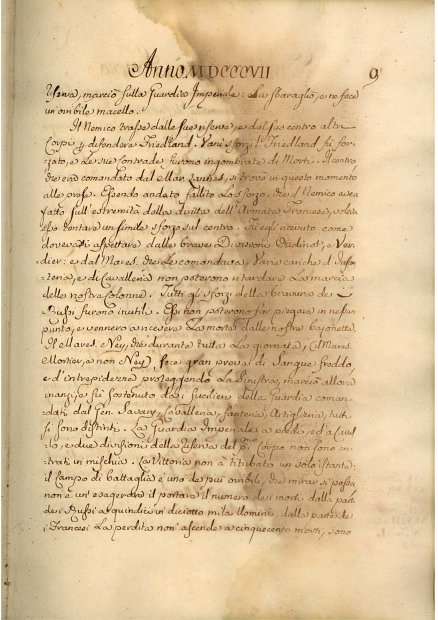 Anno MDCCCVII 9
riserva, marciò sulla Guardia Imperiale: La sbaragliò, e ne fece
un'orribile macello.
Il Nemico trasse dalle sue riserve, e dal suo centro altri
Corpi p difendere Friedland. Vani sforzi! Friedland fù for-
zato, e Le sue contrade furono ingombrate di Morti. Il centro
che era comandato dal Mar Lannes, si trovò in questo momento
alle prese. Essendo andato fallito Lo sforzo, che il Nemico avea
fatto sull'estremità della diritta dell'Armata Francese, volea
esso tentare un simile sforzo sul centro. Fù egli ricevuto come
dovevasi aspettare dalle brave Divisioni Oudinot, e Ver-
dier: e dal Mares. che Le comandava, Varie cariche d'Infan-
teria, e di Cavalleria non poterono ritardare La marcia
delle nostre Colonne. Tutti gli sforzi della bravura de
Russi furono inutili. Essi non poterono far piegare in nessun
punto, e vennero a ricevere La morte dalle nostre bajonette.
Il Mares. Ney, che durante tutta La giornata, (il Mares.
Mortier, e non Ney) fece gran prova di Sangue freddo
e d'intrepidezza proteggendo La sinistra, marciò allora
inanzi, e fù sostenuto da i fucilieri della Guardia coman-
dati dal Gen. Savary. Cavalleria, fanteria, Artiglieria, tutti
si sono distinti. La Guardia Imperiale a piedi, ed a Caval-
lo, e due divisioni della riserva del pmo Corpo non sono en-
trati in mischia. La Vittoria non à titubato un solo istante:
il Campo di battaglia è uno de più orribili, che mirar si possa,
non è un'esagerare il portare il numero de i morti dalla parte
de i Russi a quindici in diciotto mila Uomini, dalla parte de
i Francesi La perdita non ascende a cinquecento morti, sono